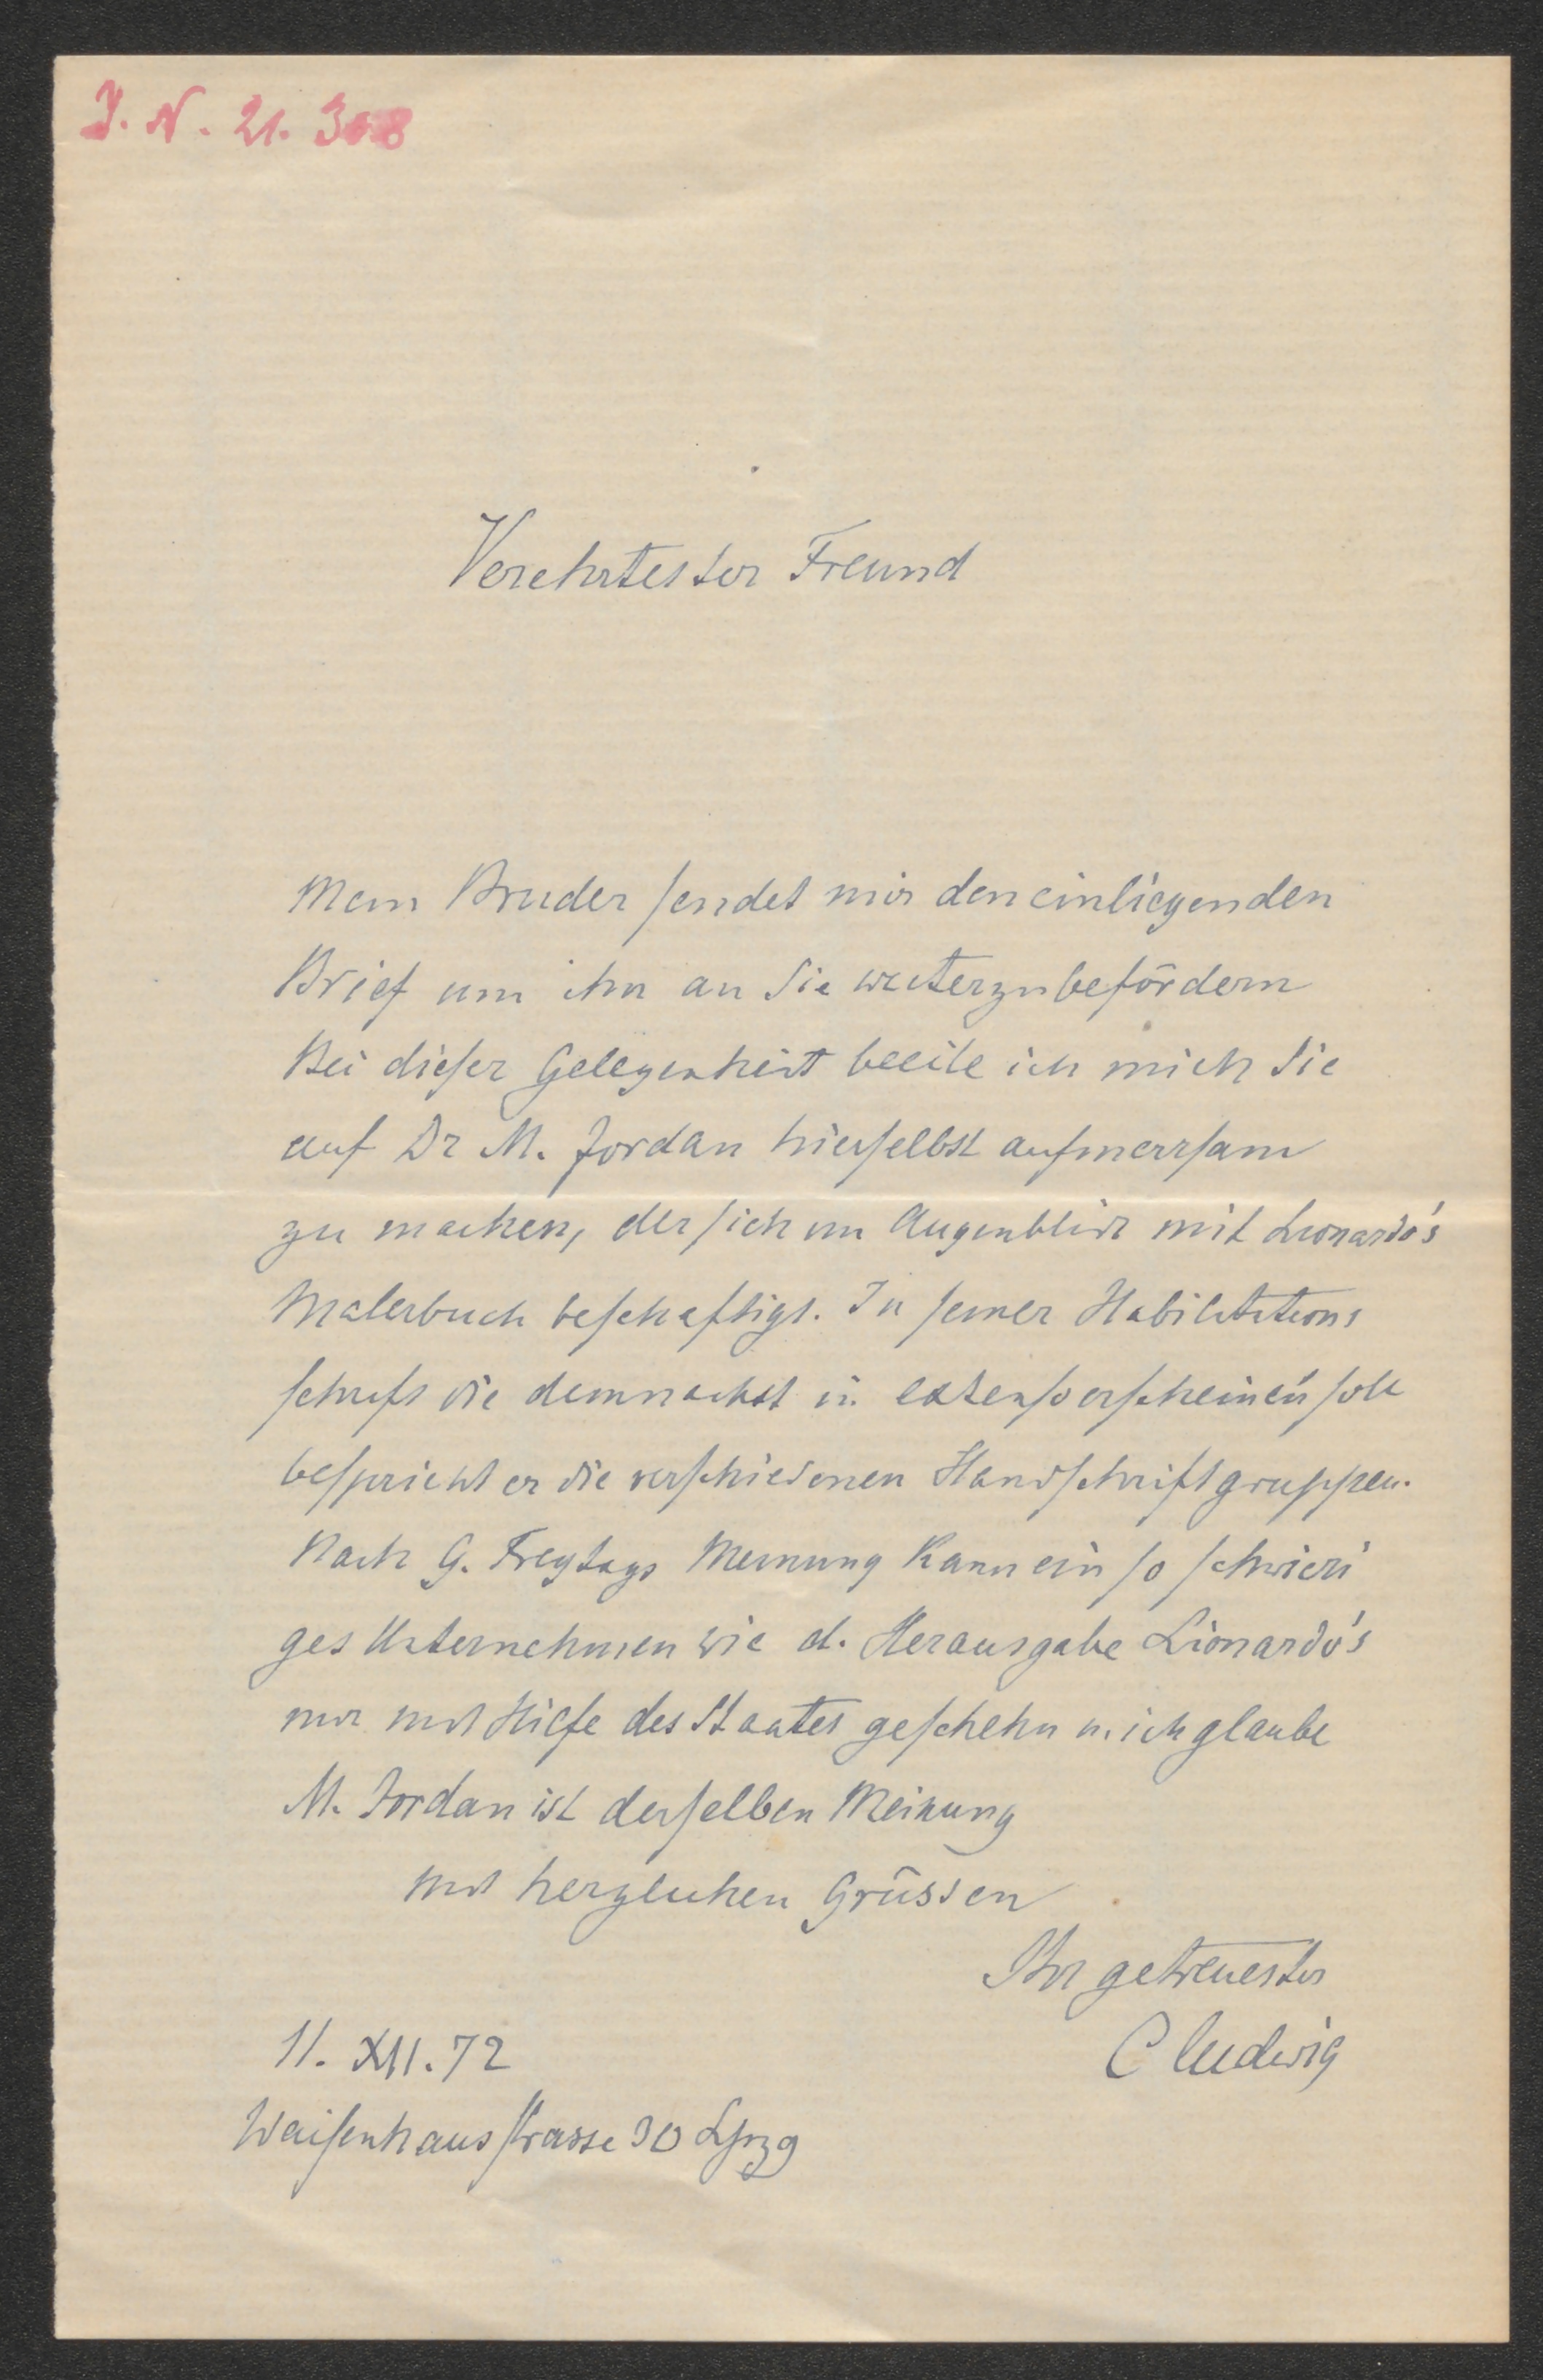 J. N. 21. 308
Verehrtester Freund
Mein Bruder sendet mir den einliegenden
Brief um ihn an Sie weiterzubefördern
Bei dieser Gelegenheit beeile ich mich Sie
auf Dr M. Jordan hierselbst aufmerksam
zu machen, der sich im Augenblick mit Lionardo's
Malerbuch beschäftigt. In seiner Habilitations
schrift die demnächst in extenso erscheinen soll
bespricht er die verschiedenen Handschriftgruppen.
Nach G. Freytags Meinung kann ein so schwieri
ges Unternehmen wie d. Herausgabe Lionardo's
nur mit Hilfe des Staates geschehn u. ich glaube
M. Jordan ist derselben Meinung
Mit herzlichen Grüssen
Ihr getreuester
C Ludwig
11. XII. 72
Waisenhausstrasse 30 Lpzg